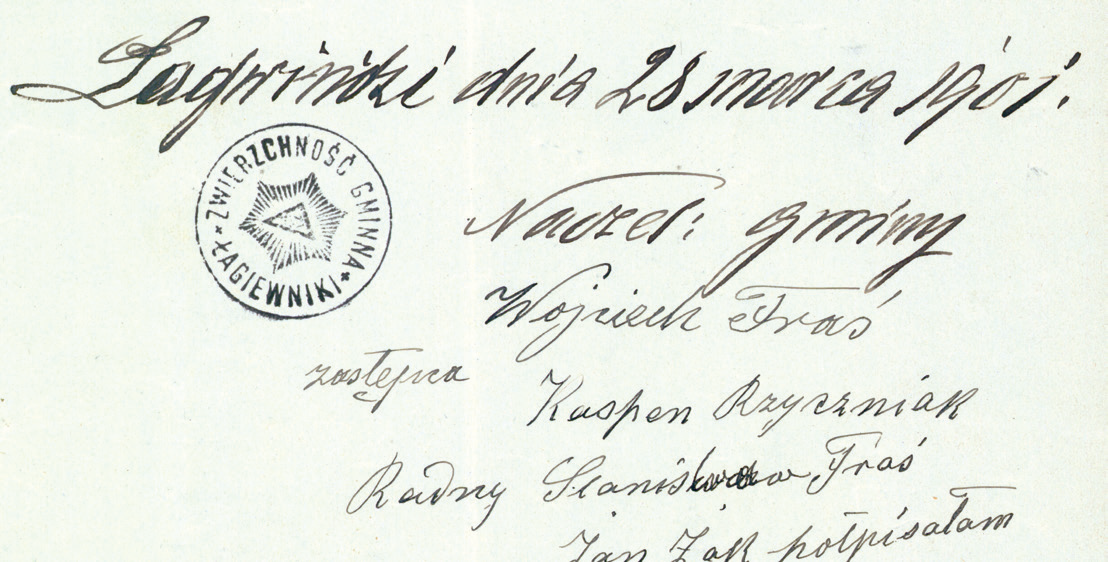 Lagwinki dnia 28 marca 1901.
ZWIERZCHNOŚĆ GMINNA
ŁAGIEWNIKI
Naczel: gminy
Wojciech Fraś
zastępca
Kasper Rzyczniak
Radny Stanisław Fraś
Jan Żak potpisałam